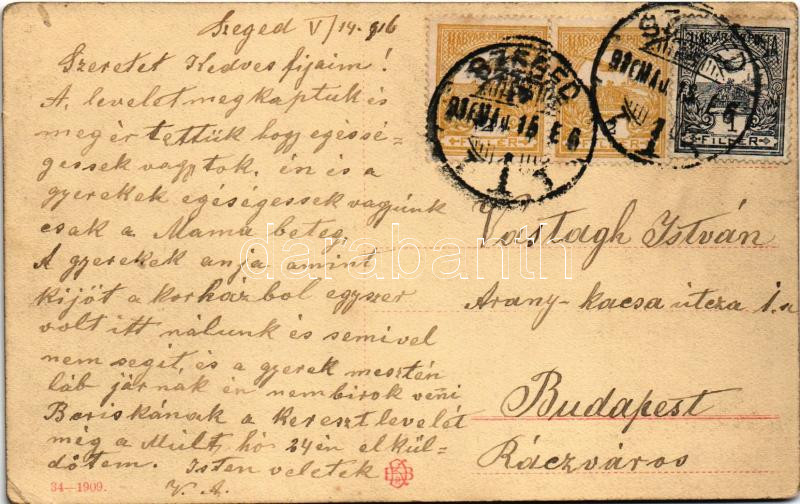 Szeged V/14. 916
Szeretet Kedves fijaim!
A levelet meg kaptuk és
meg értettük hogy egéssé-
gessek vagytok, én és a
gyerekek egéségessek vagyunk
csak a Mama beteg,
A gyerekek anja amint
kijöt a korház bol egyszer
volt itt nálunk és semivel
nem segit, és a gyerek mesztén
láb járnak én nem birok veñi
Bariskának a kereszt levelét
még a Mult hó 24én elkül-
dötem. Isten veletek
V. A.
34—1909.
MAGYAR KIR. POSTA
SZEGED
916 MÁJ. 15 E 6
1
SZEGED
1
1
FILLÉR
Vastagh István
Arany-kacsa útcza 1. u
Budapest
Ráczváros
darabanth